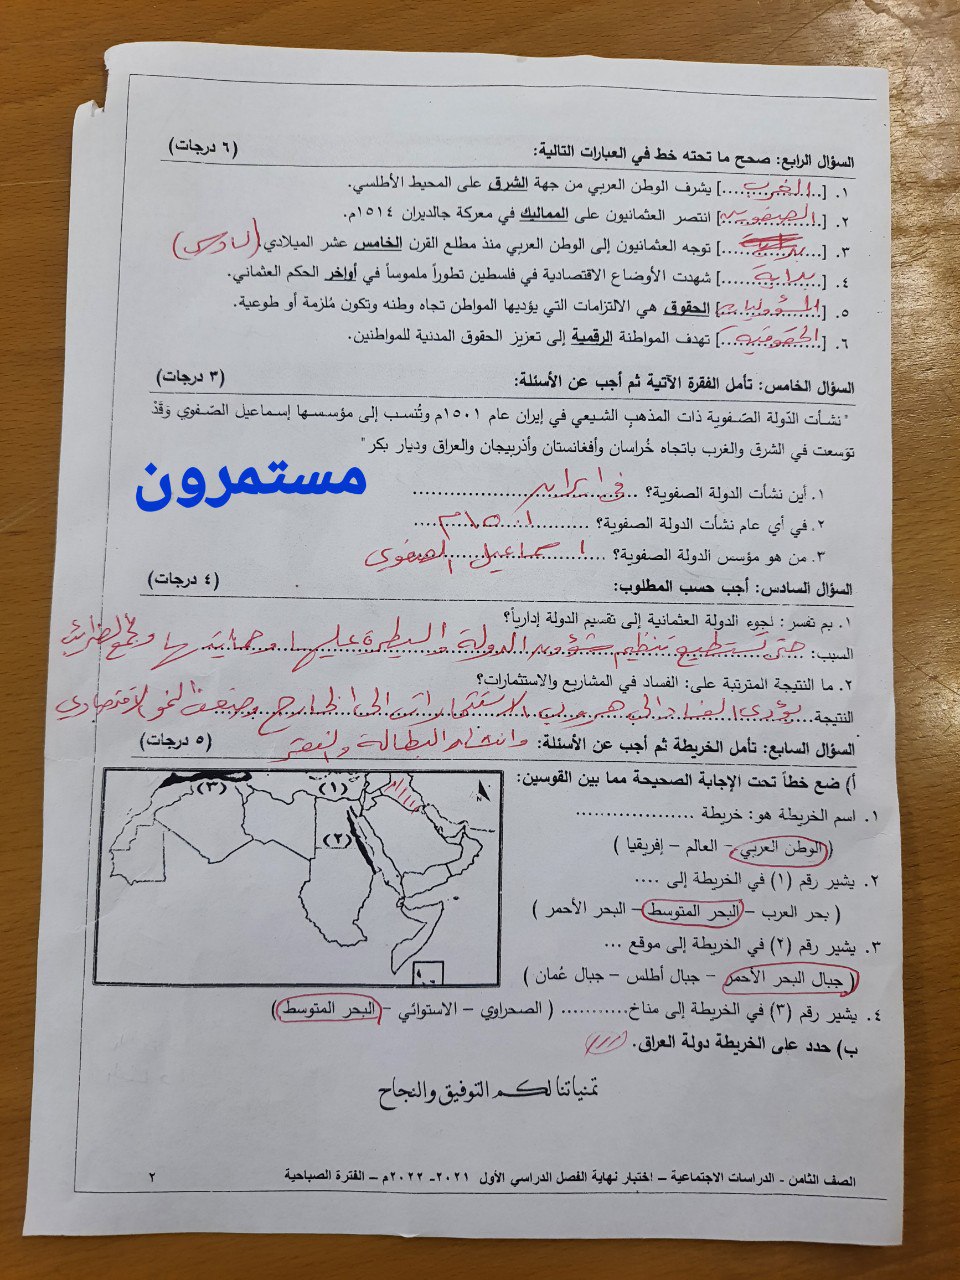 السؤال الرابع: صحح ما تحته خط في العبارات التالية: (٦ درجات)
١. [الغرب] يشرف الوطن العربي من جهة الشرق على المحيط الأطلسي.
٢. [الصفويين] انتصر العثمانيون على المماليك في معركة جالديران ١٥١٤م.
٣. [..........] توجه العثمانيون إلى الوطن العربي منذ مطلع القرن الخامس عشر الميلادي. (السادس)
٤. [بداية] شهدت الأوضاع الاقتصادية في فلسطين تطوراً ملموساً في أواخر الحكم العثماني.
٥. [المسؤوليات] الحقوق هي الالتزامات التي يؤديها المواطن تجاه وطنه وتكون مُلزمة أو طوعية.
٦. [الحقوقية] تهدف المواطنة الرقمية إلى تعزيز الحقوق المدنية للمواطنين.
السؤال الخامس: تأمل الفقرة الآتية ثم أجب عن الأسئلة: (٣ درجات)
" نشأت الدّولة الصّفوية ذات المذهب الشيعي في إيران عام ١٥٠١م وتُنسب إلى مؤسسها إسماعيل الصّفوي وَقَدْ
توَسعت في الشرق والغرب باتجاه خُراسان وأفغانستان وأذربيجان والعراق وديار بكر"
مستمرون
١. أين نشأت الدولة الصفوية؟ في ايران
٢. في أي عام نشأت الدولة الصفوية؟ ١٥٠١م
٣. من هو مؤسس الدولة الصفوية؟ اسماعيل الصفوي
السؤال السادس: أجب حسب المطلوب: (٤ درجات)
١. بم تفسر: لجوء الدولة العثمانية إلى تقسيم الدولة إدارياً؟
السبب: حتى تستطيع تنظيم شؤون الدولة والسيطرة عليها وحمايتها وجمع الضرائب
٢. ما النتيجة المترتبة على: الفساد في المشاريع والاستثمارات؟
النتيجة يؤدي الفساد الى هروب الاستثمارات الى الخارج وضعف النمو الاقتصادي
وانتشار البطالة والفقر
السؤال السابع: تأمل الخريطة ثم أجب عن الأسئلة: (٥ درجات)
أ) ضع خطاً تحت الإجابة الصحيحة مما بين القوسين:
(٣) (١)
(٢)
N
١. اسم الخريطة هو: خريطة ....................
( الوطن العربي - العالم - إفريقيا )
٢. يشير رقم (١) في الخريطة إلى ....
( بحر العرب - البحر المتوسط - البحر الأحمر )
٣. يشير رقم (٢) في الخريطة إلى موقع ...
( جبال البحر الأحمر - جبال أطلس - جبال عُمان )
٤. يشير رقم (٣) في الخريطة إلى مناخ........... ( الصحراوي - الاستوائي - البحر المتوسط )
ب) حدد على الخريطة دولة العراق.
تمنياتنا لكم التوفيق والنجاح
الصف الثامن - الدراسات الاجتماعية – اختبار نهاية الفصل الدراسي الأول ٢٠٢١- ٢٠٢٢م – الفترة الصباحية ٢